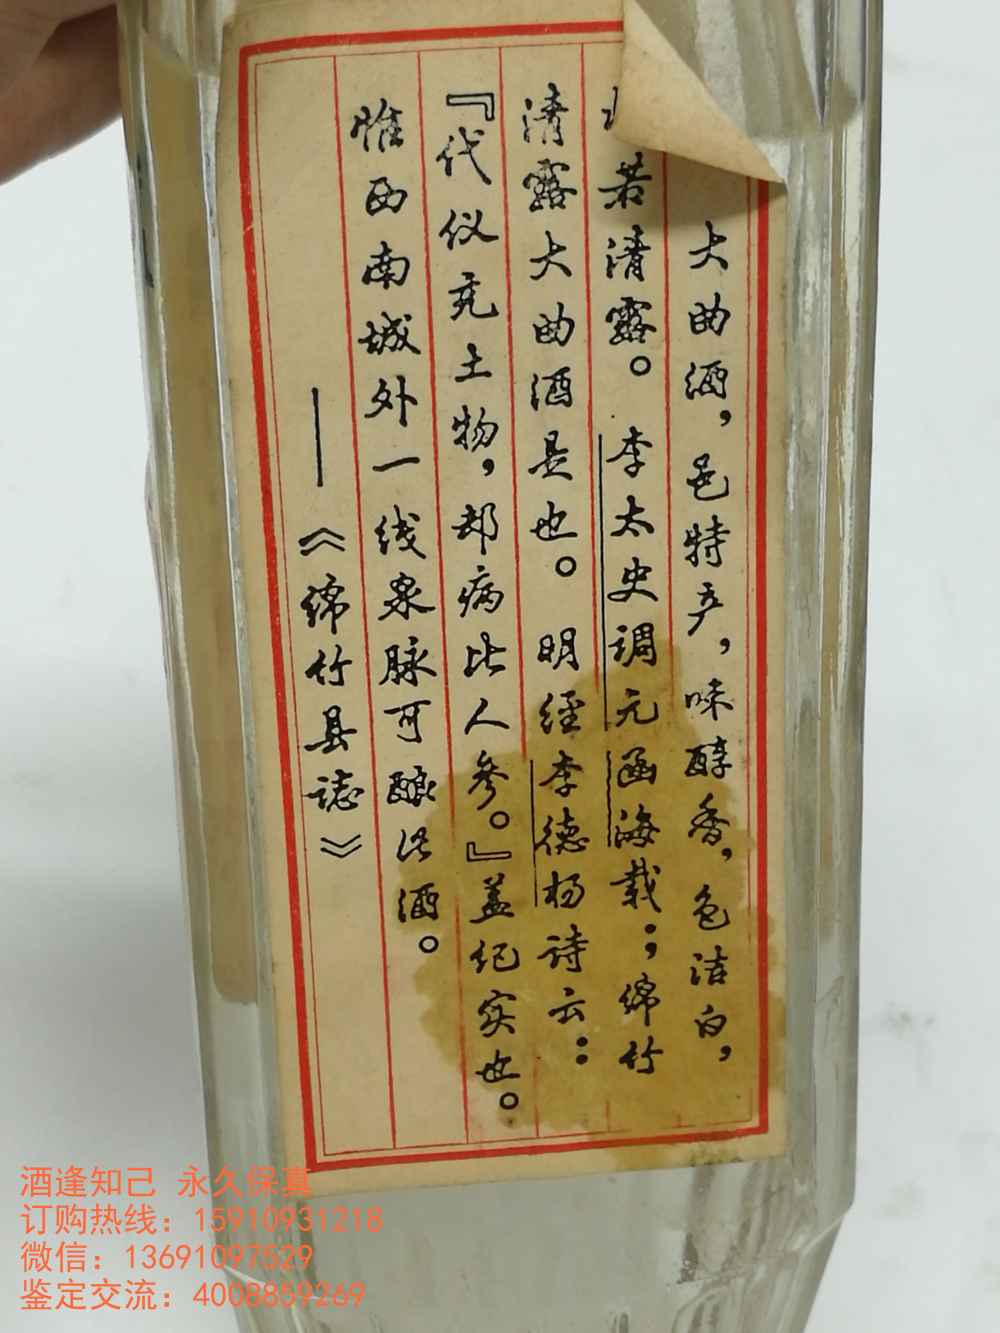 大曲酒，邑特产，味醇香，色洁白，
若清露。李太史调元函海载；绵竹
清露大曲酒是也。明经李德杨诗云：
『代仪充土物，却病比人参。』盖纪实也。
惟西南城外一线泉脉可酿此酒。
——《绵竹县誌》
酒逢知己 永久保真
订购热线：15910931218
微信：13691097529
鉴定交流：4008859269